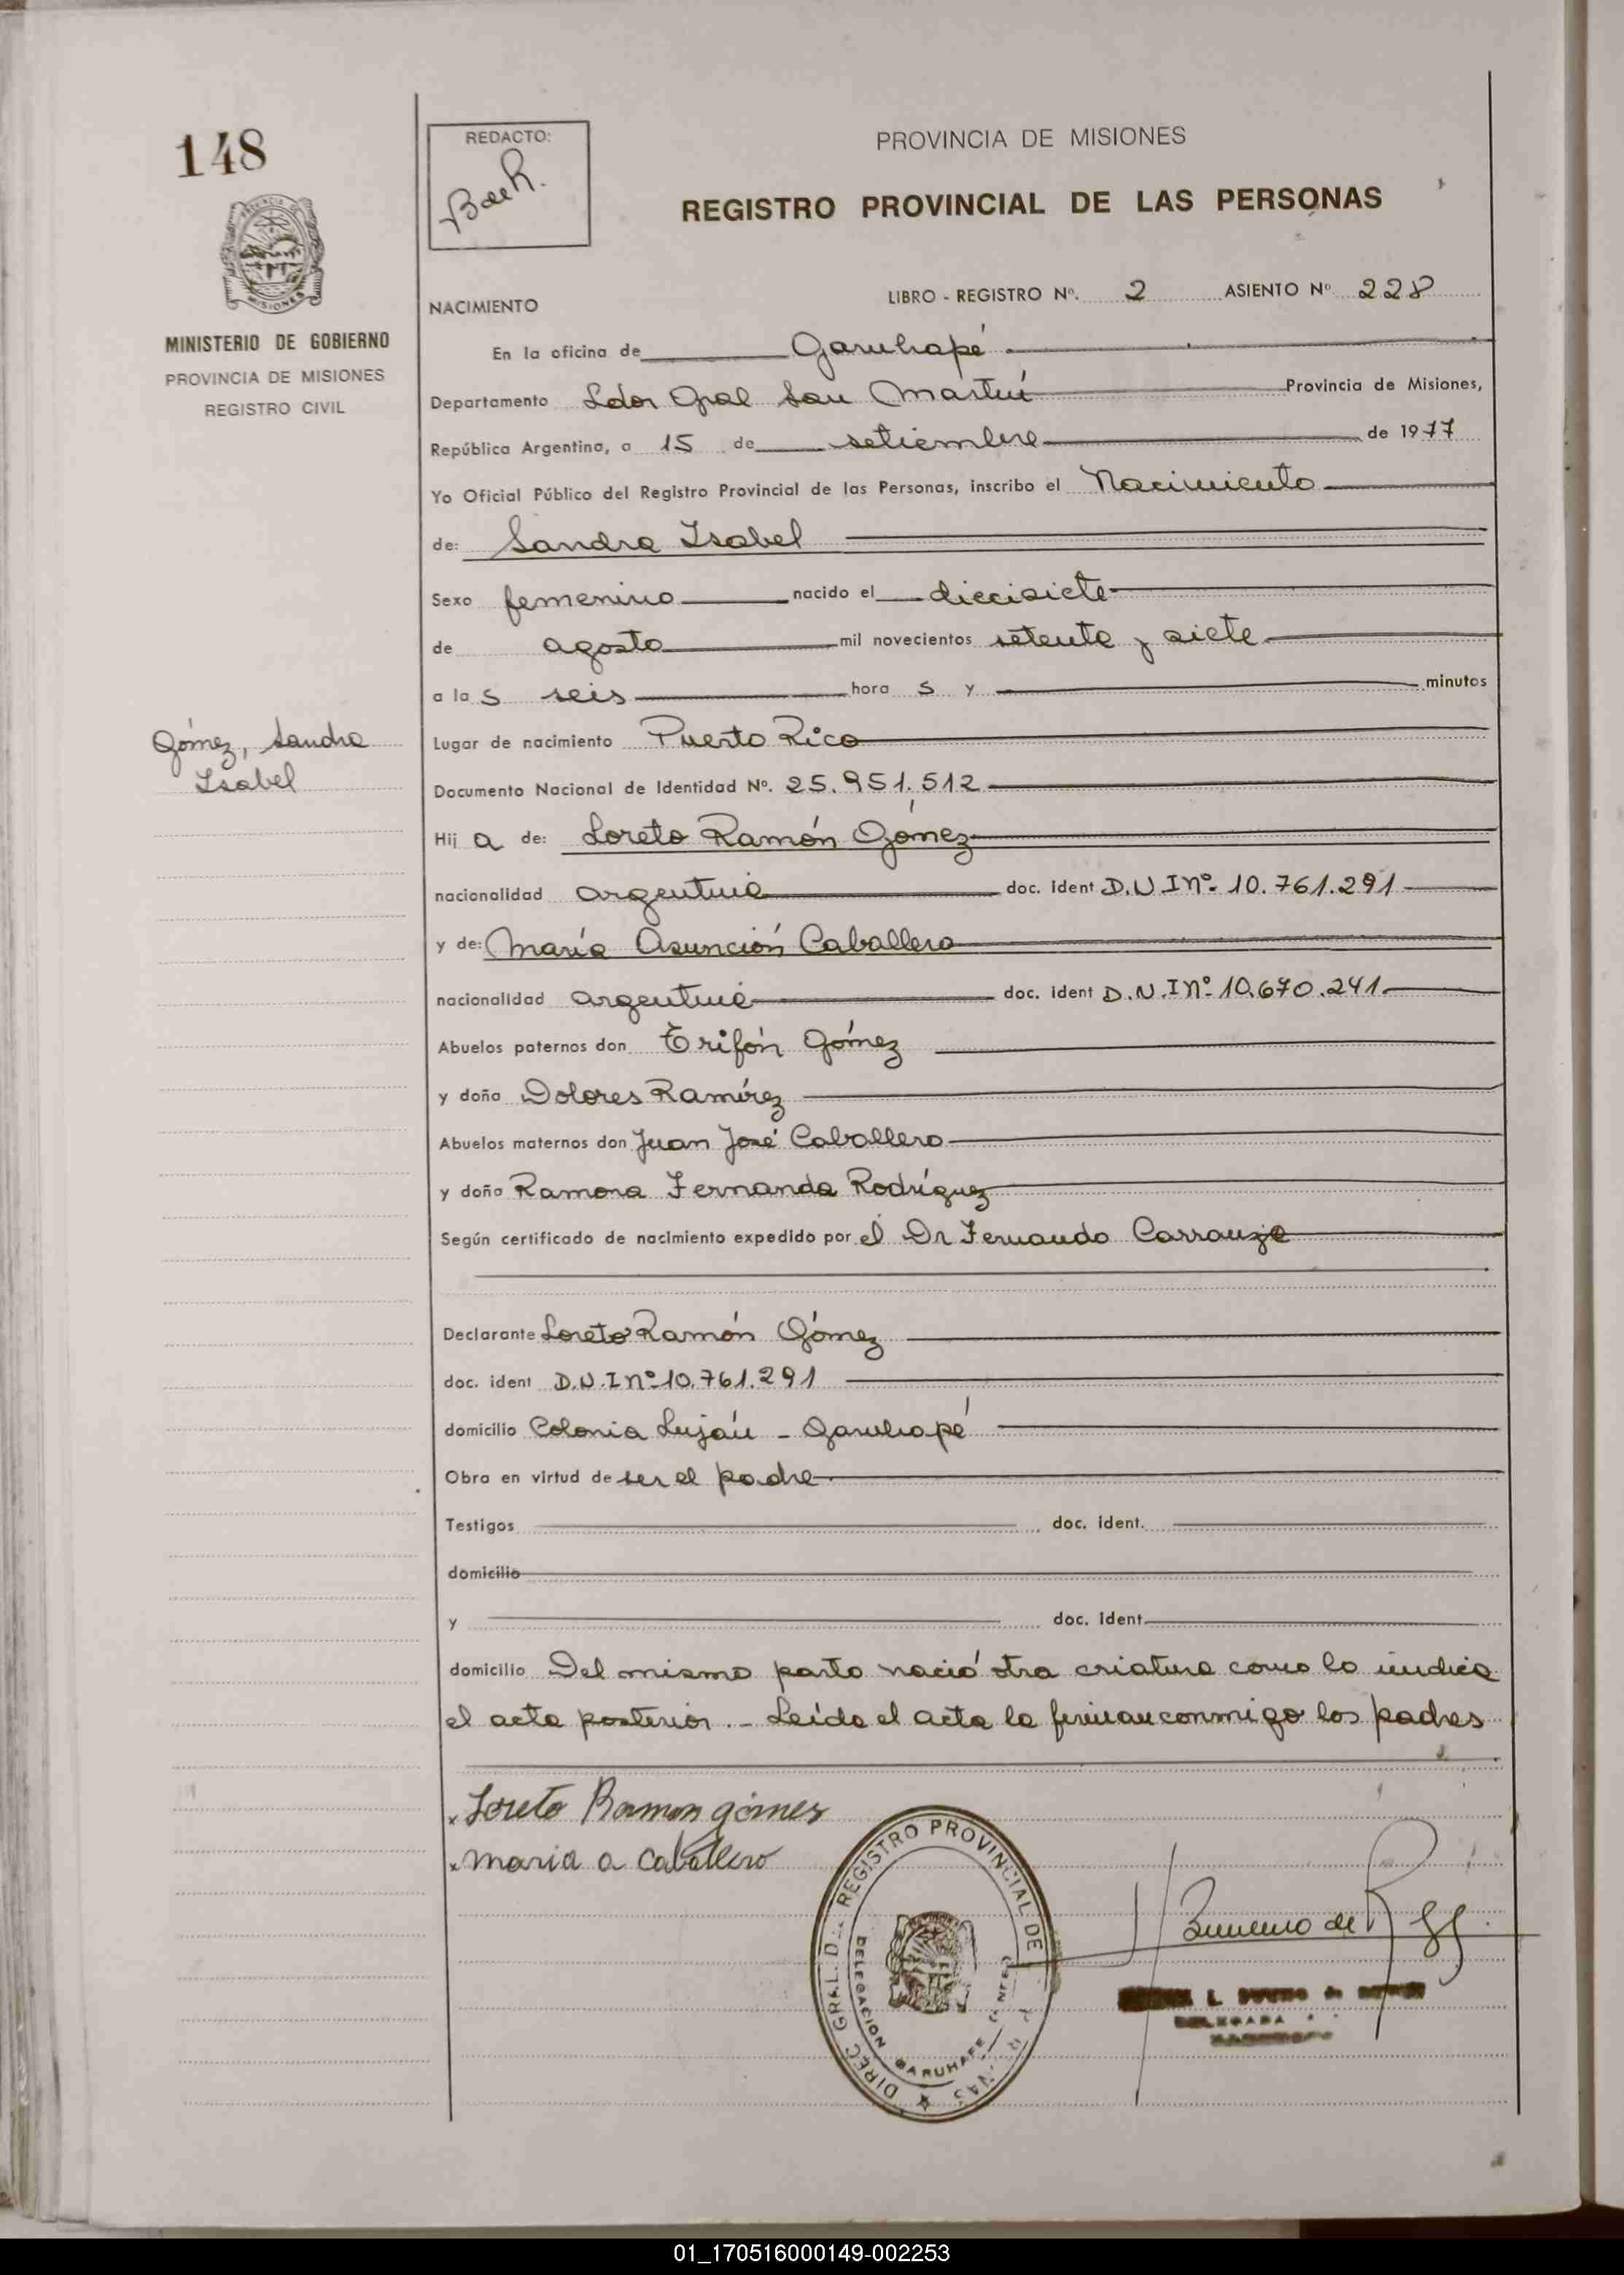 148
REDACTO:
BdeR.
PROVINCIA DE MISIONES
REGISTRO PROVINCIAL DE LAS PERSONAS
MISIONES
MINISTERIO DE GOBIERNO
PROVINCIA DE MISIONES
REGISTRO CIVIL
LIBRO - REGISTRO Nº. 2 ASIENTO Nº 228
NACIMIENTO
En la oficina de Garuhapé
Departamento Ldor Gral San Martín Provincia de Misiones,
República Argentina, a 15 de setiembre de 1977
Yo Oficial Público del Registro Provincial de las Personas, inscribo el Nacimiento
de: Sandra Isabel
Sexo femenino nacido el diecisiete
de agosto mil novecientos setenta y siete
a la s seis hora s y minutos
Gómez, Sandra
Isabel
Lugar de nacimiento Puerto Rico
Documento Nacional de Identidad Nº. 25.951.512
Hij a de: Loreto Ramón Gómez
nacionalidad argentina doc. ident D.N.I Nº 10.761.291
y de: María Asunción Caballero
nacionalidad argentina doc. ident D.N.I Nº 10.670.241
Abuelos paternos don Trifón Gómez
y doña Dolores Ramírez
Abuelos maternos don Juan José Caballero
y doña Ramona Fernanda Rodríguez
Según certificado de nacimiento expedido por el Dr Fernando Carranza
Declarante Loreto Ramón Gómez
doc. ident D.N.I Nº 10.761.291
domicilio Colonia Luján - Garuhapé
Obra en virtud de ser el padre
Testigos doc. ident.
domicilio
y doc. ident.
domicilio Del mismo parto nació otra criatura como lo indica
el acta posterior. - Leída el acta la firman conmigo los padres
x Loreto Ramon gómes
x maria a caballero
DIREC. GRAL. DEL REGISTRO PROVINCIAL DE
DELEGACION GARUHAPE
DELEGADA
01_170516000149-002253